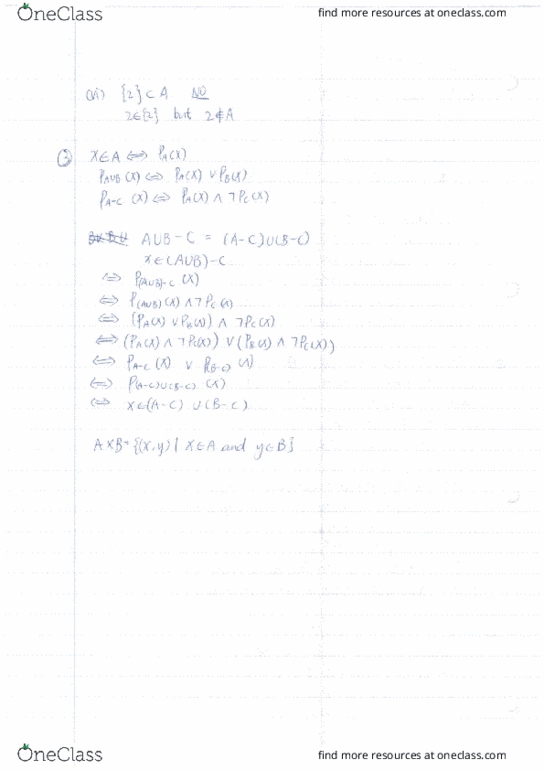 OneClass
find more resources at oneclass.com
(vi) {2} ⊂ A NO
2∈{2} but 2∉A
③ X∈A ⇔ P_A(X)
P_{A∪B}(X) ⇔ P_A(X) ∨ P_B(X)
P_{A-C}(X) ⇔ P_A(X) ∧ ¬P_C(X)
A∪B-C = (A-C)∪(B-C)
X∈(A∪B)-C
⇔ P_{(A∪B)-C}(X)
⇔ P_{(A∪B)}(X) ∧ ¬P_C(X)
⇔ (P_A(X) ∨ P_B(X)) ∧ ¬P_C(X)
⇔ (P_A(X) ∧ ¬P_C(X)) ∨ (P_B(X) ∧ ¬P_C(X))
⇔ P_{A-C}(X) ∨ P_{(B-C)}(X)
⇔ P_{(A-C)∪(B-C)}(X)
⇔ X∈(A-C) ∪ (B-C)
A×B={(X,y)| X∈A and y∈B}
OneClass
find more resources at oneclass.com